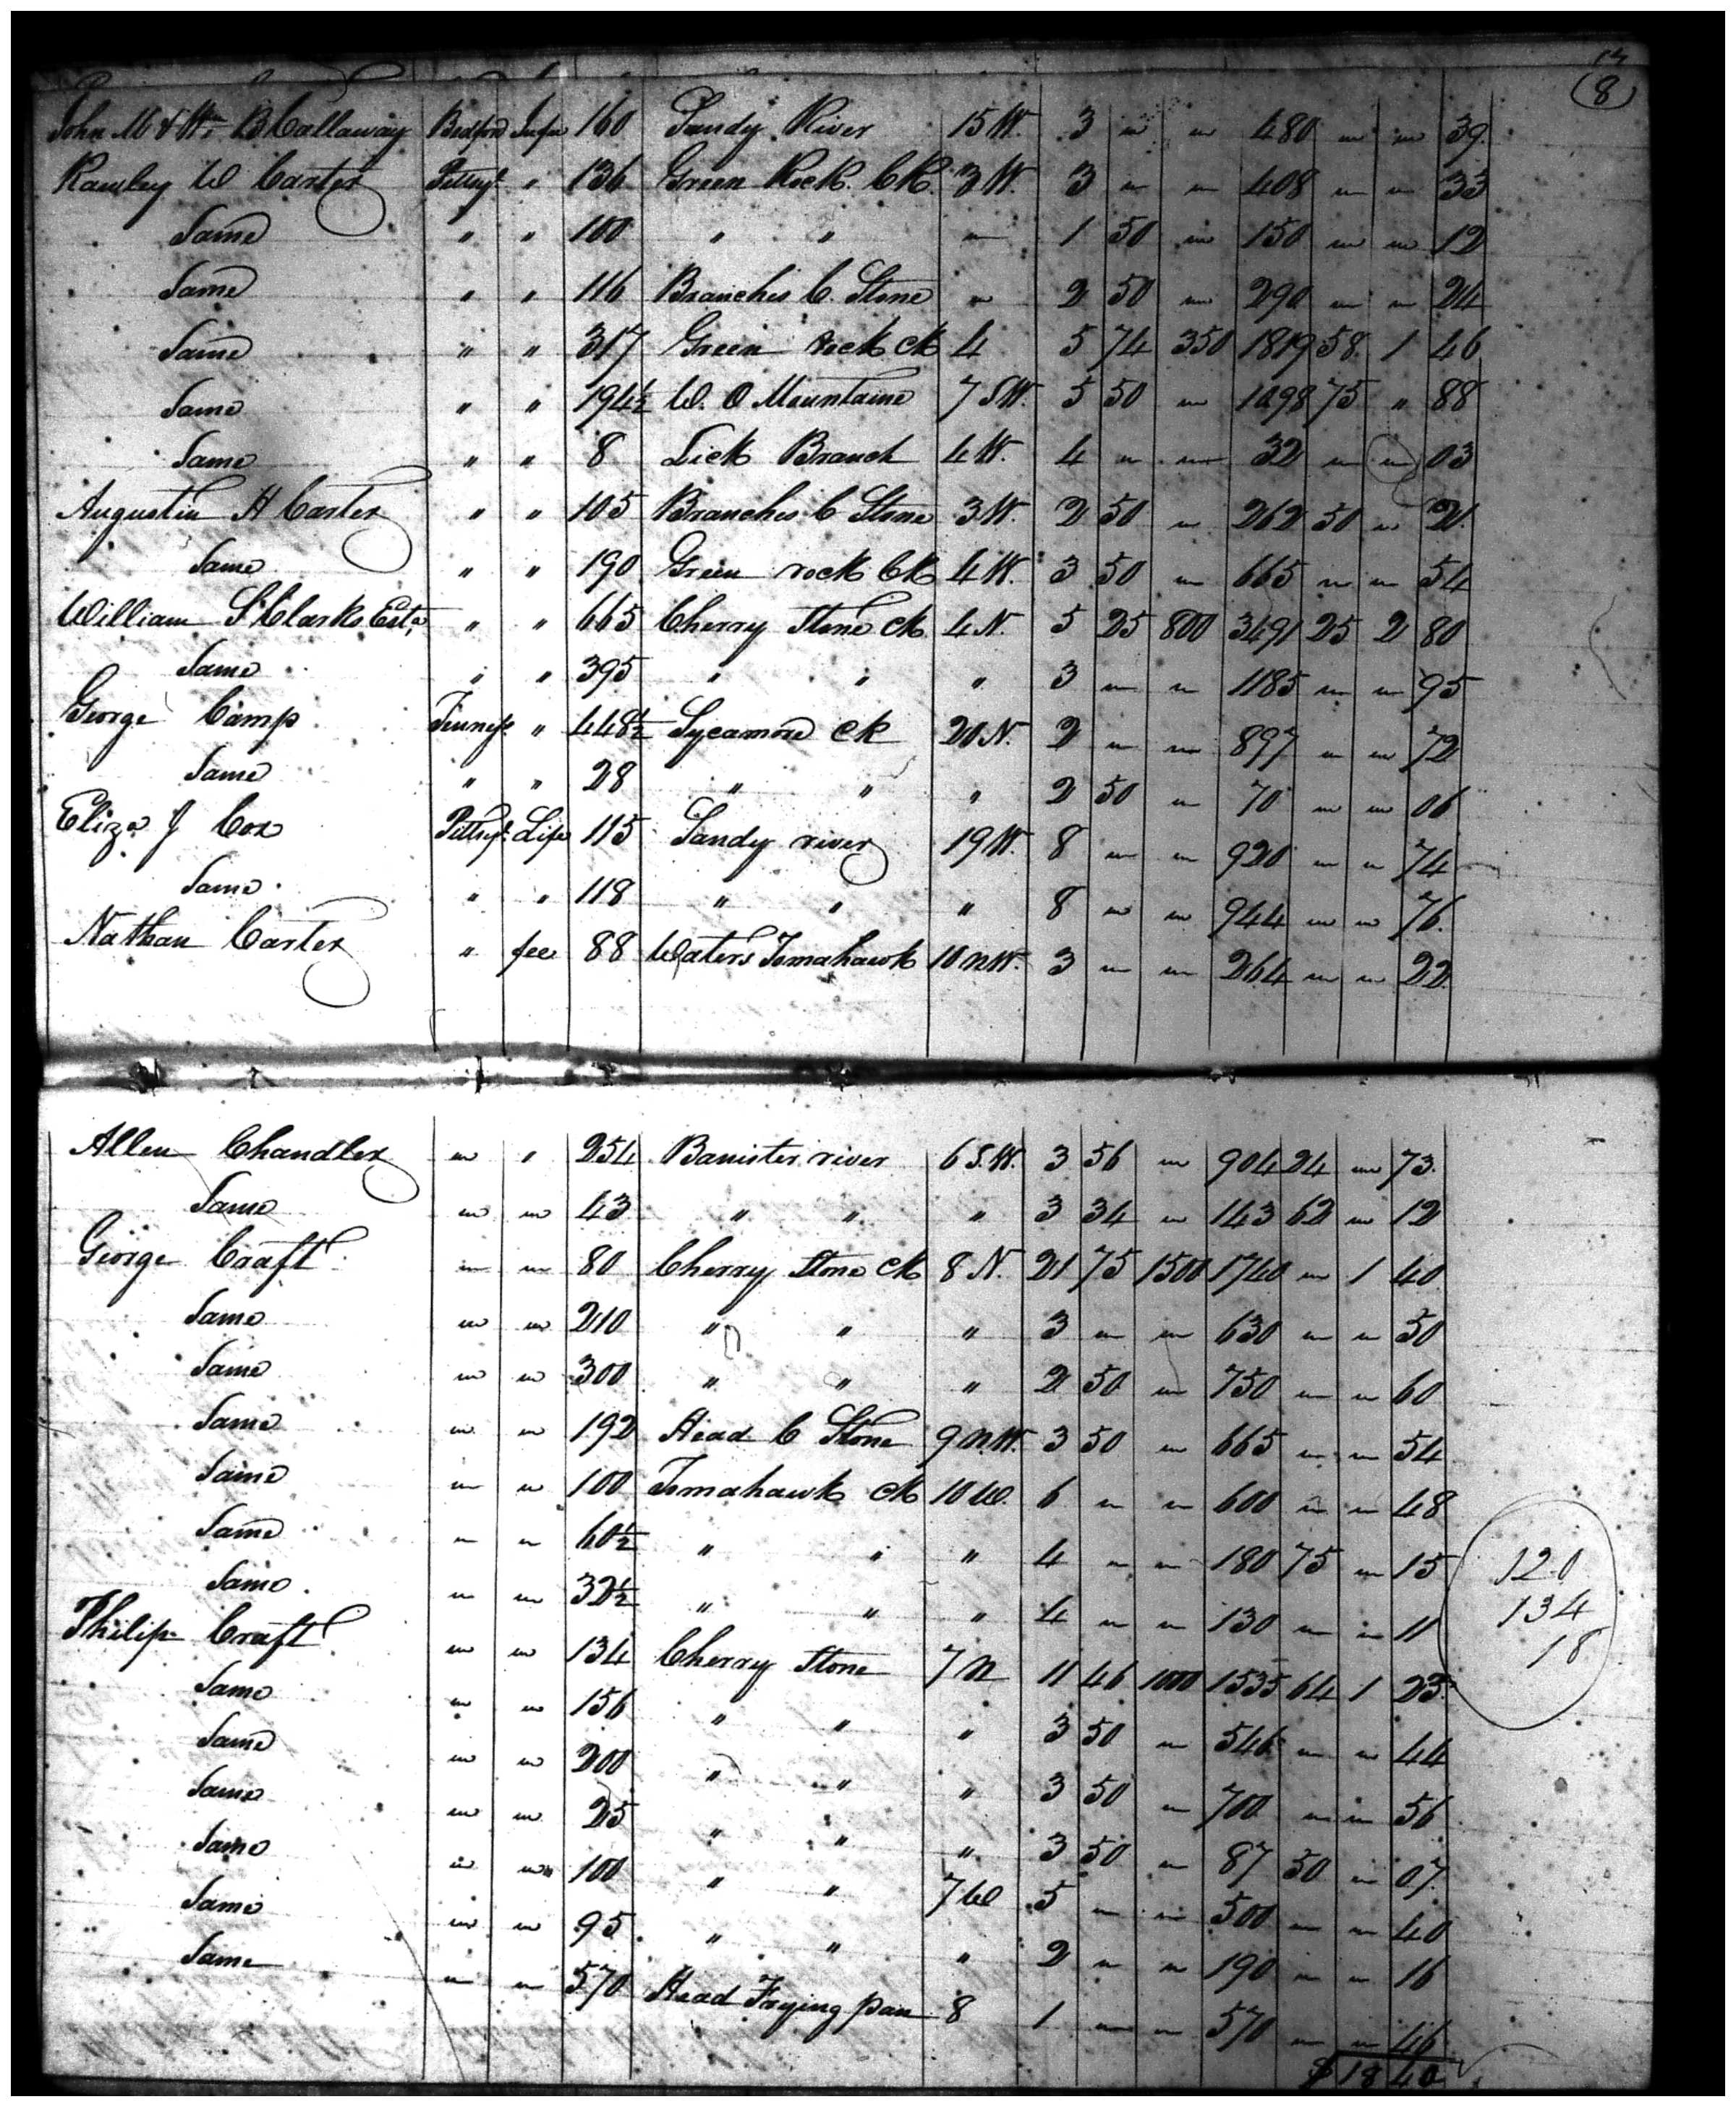 (8)
John M & Wm B Callaway Bedford In fee 160 Sandy River 15 W. 3 " " 480 " " 39
Rawley W Carter Pittsyl " 136 Green Rock CK. 3 W. 3 " " 408 " " 33
Same " " 100 " " " 1 50 " 150 " " 12
Same " " 116 Branches C. Stone " 2 50 " 290 " " 24
Same " " 317 Green rock ck 4 5 74 350 1819 58 1 46
Same " " 194½ W. O Mountaine 7 SW. 5 50 " 1098 75 " 88
Same " " 8 Lick Branch 4 W. 4 " " 32 " " 03
Augustin H Carter " " 105 Branches C Stone 3 W. 2 50 " 262 50 " 21
Same " " 190 Green rock Ck 4 W. 3 50 " 665 " " 54
William S Clarks Esta, " " 665 Cherry Stone ck 4 N. 5 25 800 3491 25 2 80
Same " " 395 " " " 3 " " 1185 " " 95
George Camp Tennes. " 448½ Sycamore ck 20 N. 2 " " 897 " " 72
Same " " 28 " " " 2 50 " 70 " " 06
Eliza. J Cox Pittsyl. Life 115 Sandy river 19 W. 8 " " 920 " " 74
Same " " 118 " " " 8 " " 944 " " 76
Nathan Carter " fee 88 Waters Tomahawk 10 NW. 3 " " 264 " " 22
Allen Chandler " " 254 Banister river 6 S.W. 3 56 " 904 24 " 73
Same " " 43 " " " 3 34 " 143 62 " 12
George Craft " " 80 Cherry Stone ck 8 N. 21 75 1500 1740 " 1 40
Same " " 210 " " " 3 " " 630 " " 50
Same " " 300 " " " 2 50 " 750 " " 60
Same " " 192 Head C Stone 9 N.W. 3 50 " 665 " " 54
Same " " 100 Tomahawk ck 10 W. 6 " " 600 " " 48
Same " " 60½ " " " 4 " " 180 75 " 15
Same " " 32½ " " " 4 " " 130 " " 11
Philip Craft " " 134 Cherry Stone 7 N 11 46 1000 1535 64 1 23
Same " " 156 " " " 3 50 " 546 " " 44
Same " " 200 " " " 3 50 " 700 " " 56
Same " " 25 " " " 3 50 " 87 50 " 07
Same " " 100 " " 7 W 5 " " 500 " " 40
Same " " 95 " " " 2 " " 190 " " 16
Same " " 570 Head Frying pan 8 1 " " 570 " " 46
$18 40
120
134
18